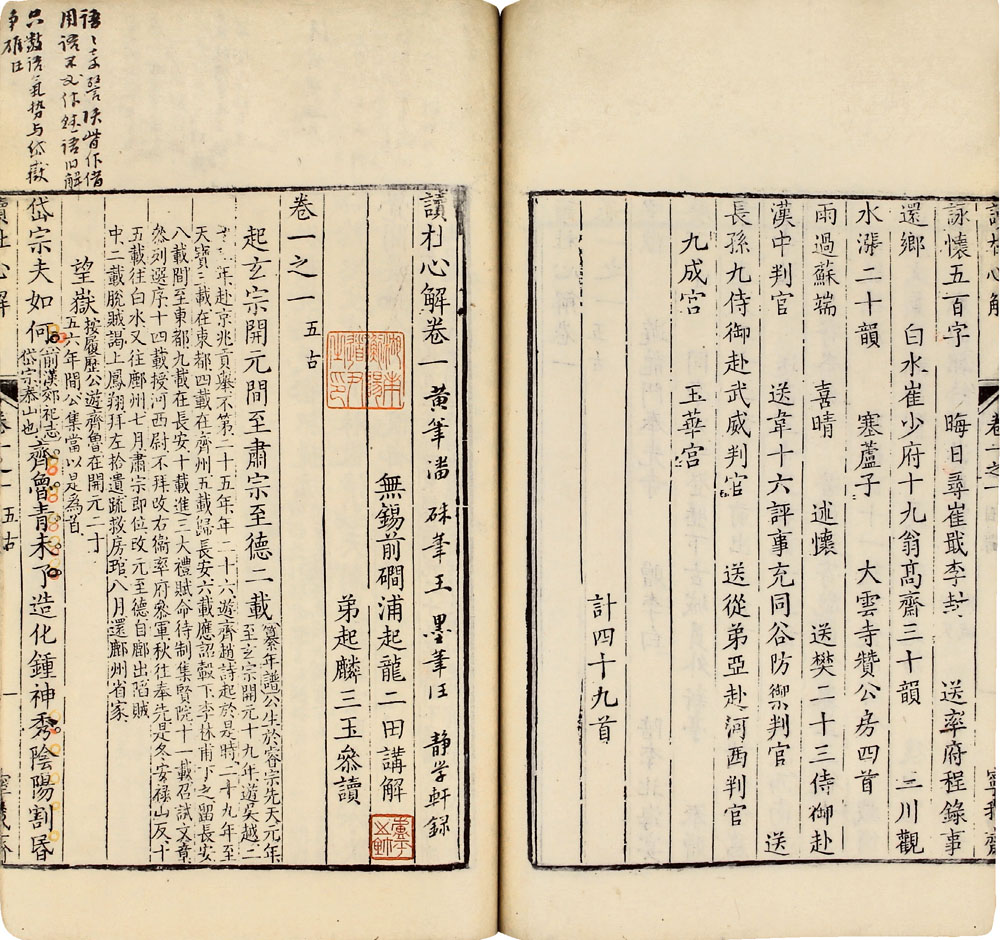 詠懷五百字　晦日尋崔戢李封　送率府程錄事
還鄉　白水崔少府十九翁高齋三十韻　三川觀
水漲二十韻　塞蘆子　大雲寺贊公房四首
雨過蘇端　喜晴　述懷　送樊二十三侍御赴
漢中判官　送韋十六評事充同谷防禦判官　送
長孫九侍御赴武威判官　送從弟亞赴河西判官
九成宮　玉華宮
計四十九首
讀杜心解卷一　黃筆潘　硃筆王　墨筆汪　靜学軒録
無錫前磵浦起龍二田講解
弟起麟三玉叅讀
卷一之一　五古
起玄宗開元間至肅宗至德二載
纂年譜公生於睿宗先天元年
至玄宗開元十九年遊吳越二
年赴京兆貢舉不第二十五年年二十六遊齊趙詩起於是時二十九年至
天寶三載在東都四載在齊州五載歸長安六載應詔轂下李林甫下之留長安
八載間至東都九載在長安十載進三大禮賦命待制集賢院十一載召試文章
叅列選序十四載授河西尉不拜改右衞率府叅軍秋往奉先是冬安祿山反十
五載往白水又往鄜州七月肅宗即位改元至德自鄜出陷賊
中二載脫賊謁上鳳翔拜左拾遺疏救房琯八月還鄜州省家
望嶽
按履歷公遊齊魯在開元二十
五六年間公集當以是為首
岱宗夫如何
前漢郊祀志
岱宗泰山也
齊魯青未了造化鍾神秀陰陽割昏
語
用語不
只數語氣势与岱嶽
争雄汪